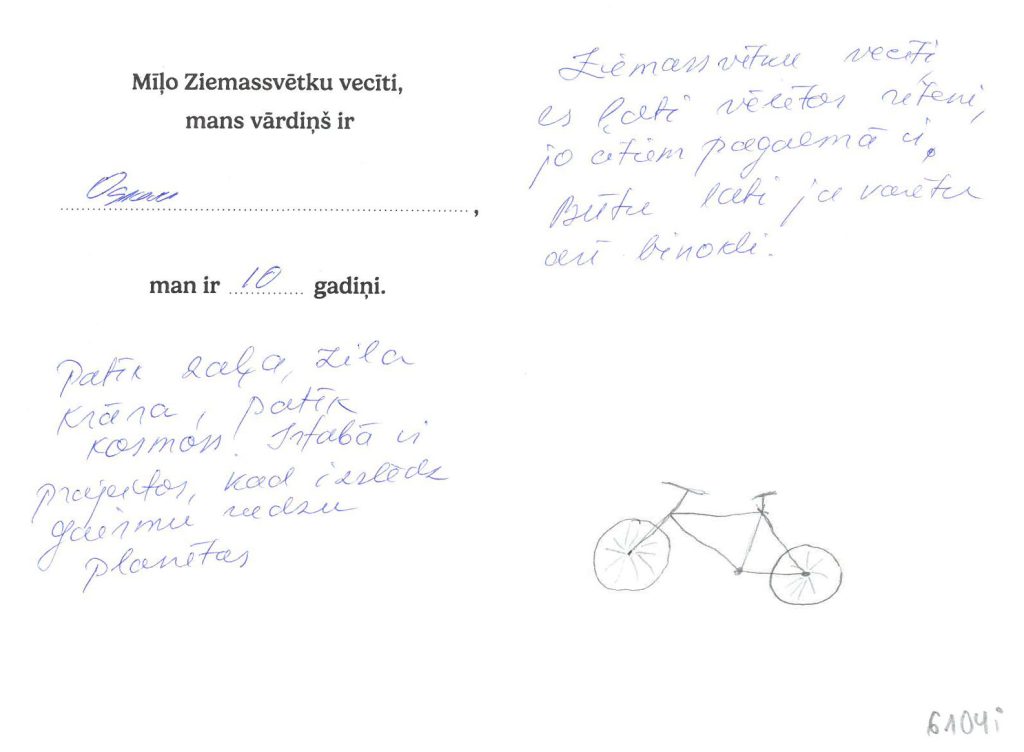 Mīļo Ziemassvētku vecīti,
mans vārdiņš ir
man ir 10 gadiņi.
Patīk zaļa, zila
krāsa, patīk
kosmoss! Istabā ir
projektos, kad izslēdz
gaismu redzu
planētas
Ziemassvētku vecīti,
es ļoti vēlētos riteni,
jo citiem pagalmā ir.
Būtu ļoti ja varētu
arī binokli.
6104i